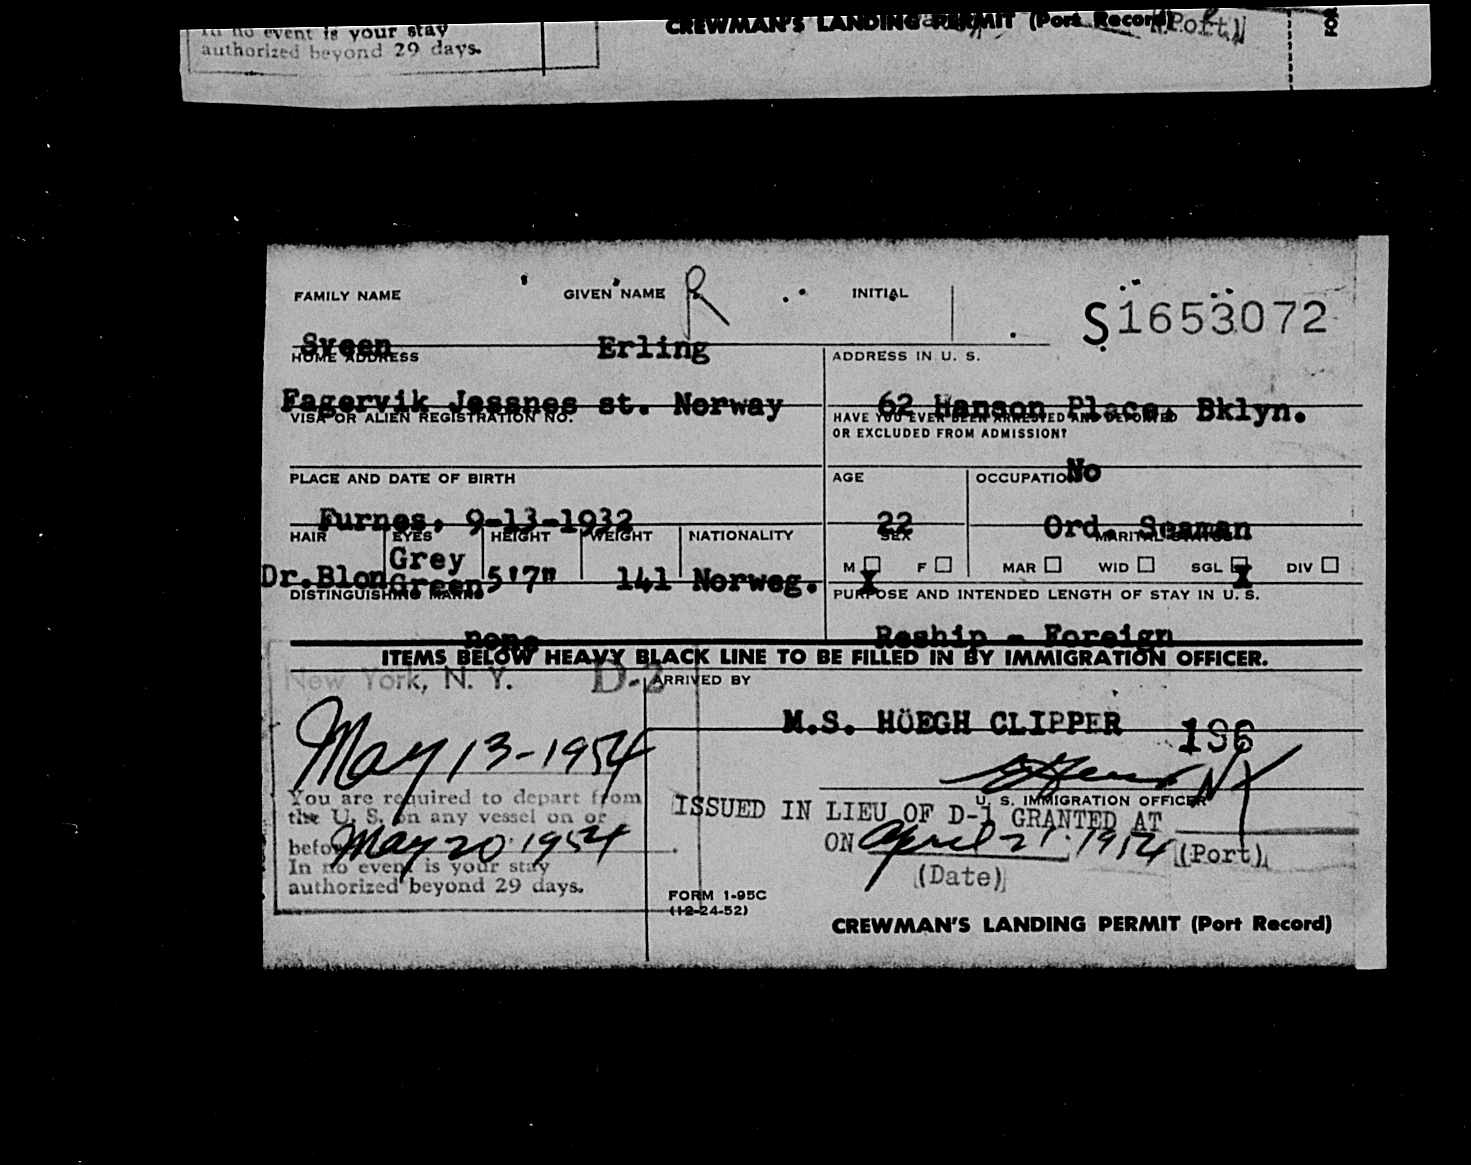 In no event is your stay
authorized beyond 29 days.
CREWMAN'S LANDING PERMIT (Port Record)
(Port)
FAMILY NAME GIVEN NAME R INITIAL
S1653072
Sveen Erling
HOME ADDRESS ADDRESS IN U. S.
Fagervik Jessnes st. Norway 62 Hanson Place, Bklyn.
VISA OR ALIEN REGISTRATION NO. HAVE YOU EVER BEEN ARRESTED AND DEPORTED
OR EXCLUDED FROM ADMISSION?
No
PLACE AND DATE OF BIRTH AGE OCCUPATION
Furnes, 9-13-1932 22 Ord. Seaman
HAIR EYES HEIGHT WEIGHT NATIONALITY SEX MARITAL STATUS
Grey
M X F MAR WID SGL X DIV
Dr.Blon Green 5'7" 141 Norweg.
DISTINGUISHING MARKS PURPOSE AND INTENDED LENGTH OF STAY IN U. S.
none Reship - Foreign
ITEMS BELOW HEAVY BLACK LINE TO BE FILLED IN BY IMMIGRATION OFFICER.
New York, N. Y. D-2 ARRIVED BY
M.S. HÖEGH CLIPPER 196
May 13-1954
NY
You are required to depart from
the U. S. on any vessel on or
before May 20 1954
In no event is your stay
authorized beyond 29 days.
U. S. IMMIGRATION OFFICER
ISSUED IN LIEU OF D-1 GRANTED AT
ON April 21 1954 (Port)
(Date)
FORM I-95C
(12-24-52)
CREWMAN'S LANDING PERMIT (Port Record)